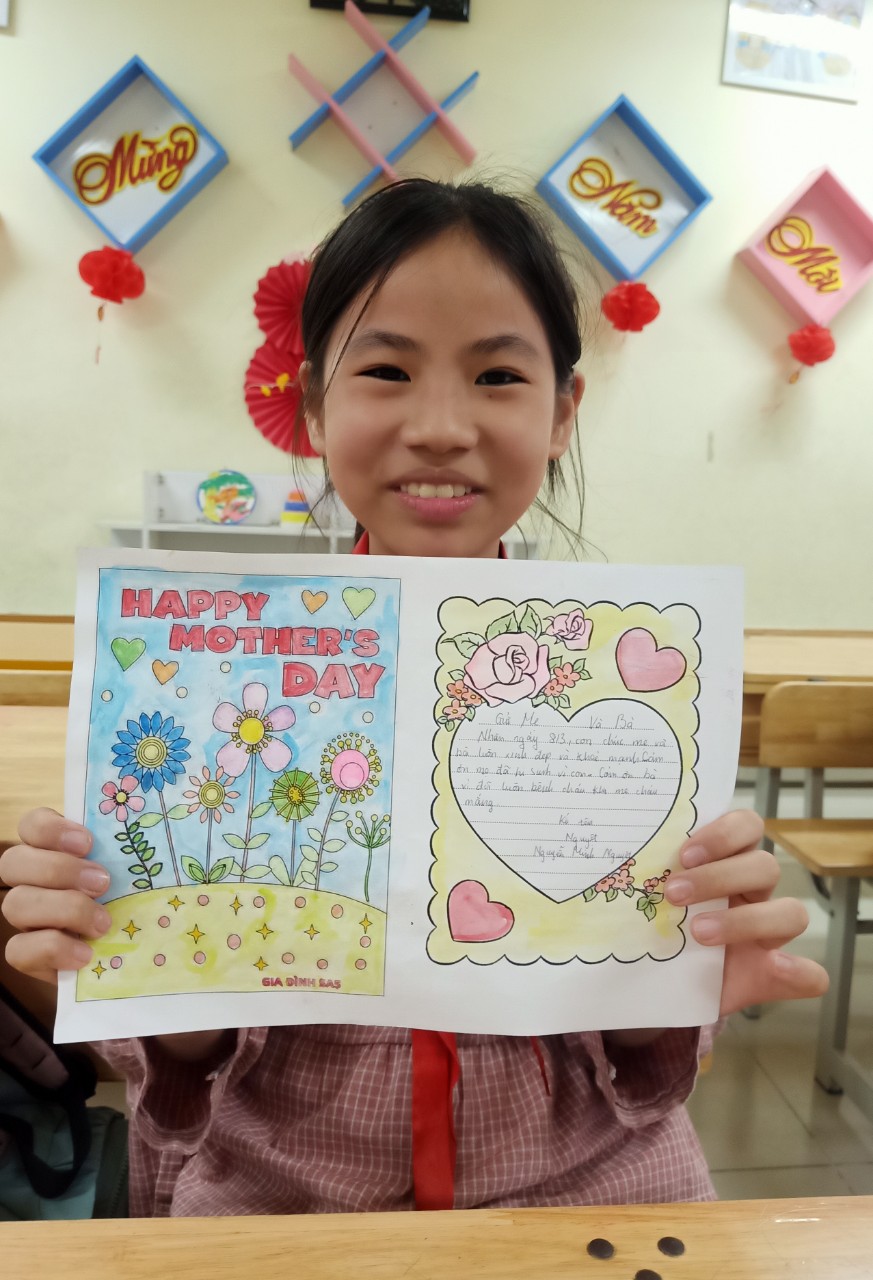 Mừng
Năm
Mới
HAPPY
MOTHER'S
DAY
GIA ĐÌNH
Gửi Mẹ Và Bà
Nhân ngày 8/3, con chúc mẹ và
bà luôn xinh đẹp và khoẻ mạnh. Cảm
ơn mẹ đã hi sinh vì con. Cảm ơn bà
vì đã luôn bênh cháu khi mẹ cháu
mắng
Kí tên
Nguyệt
Nguyễn Minh Nguyệt